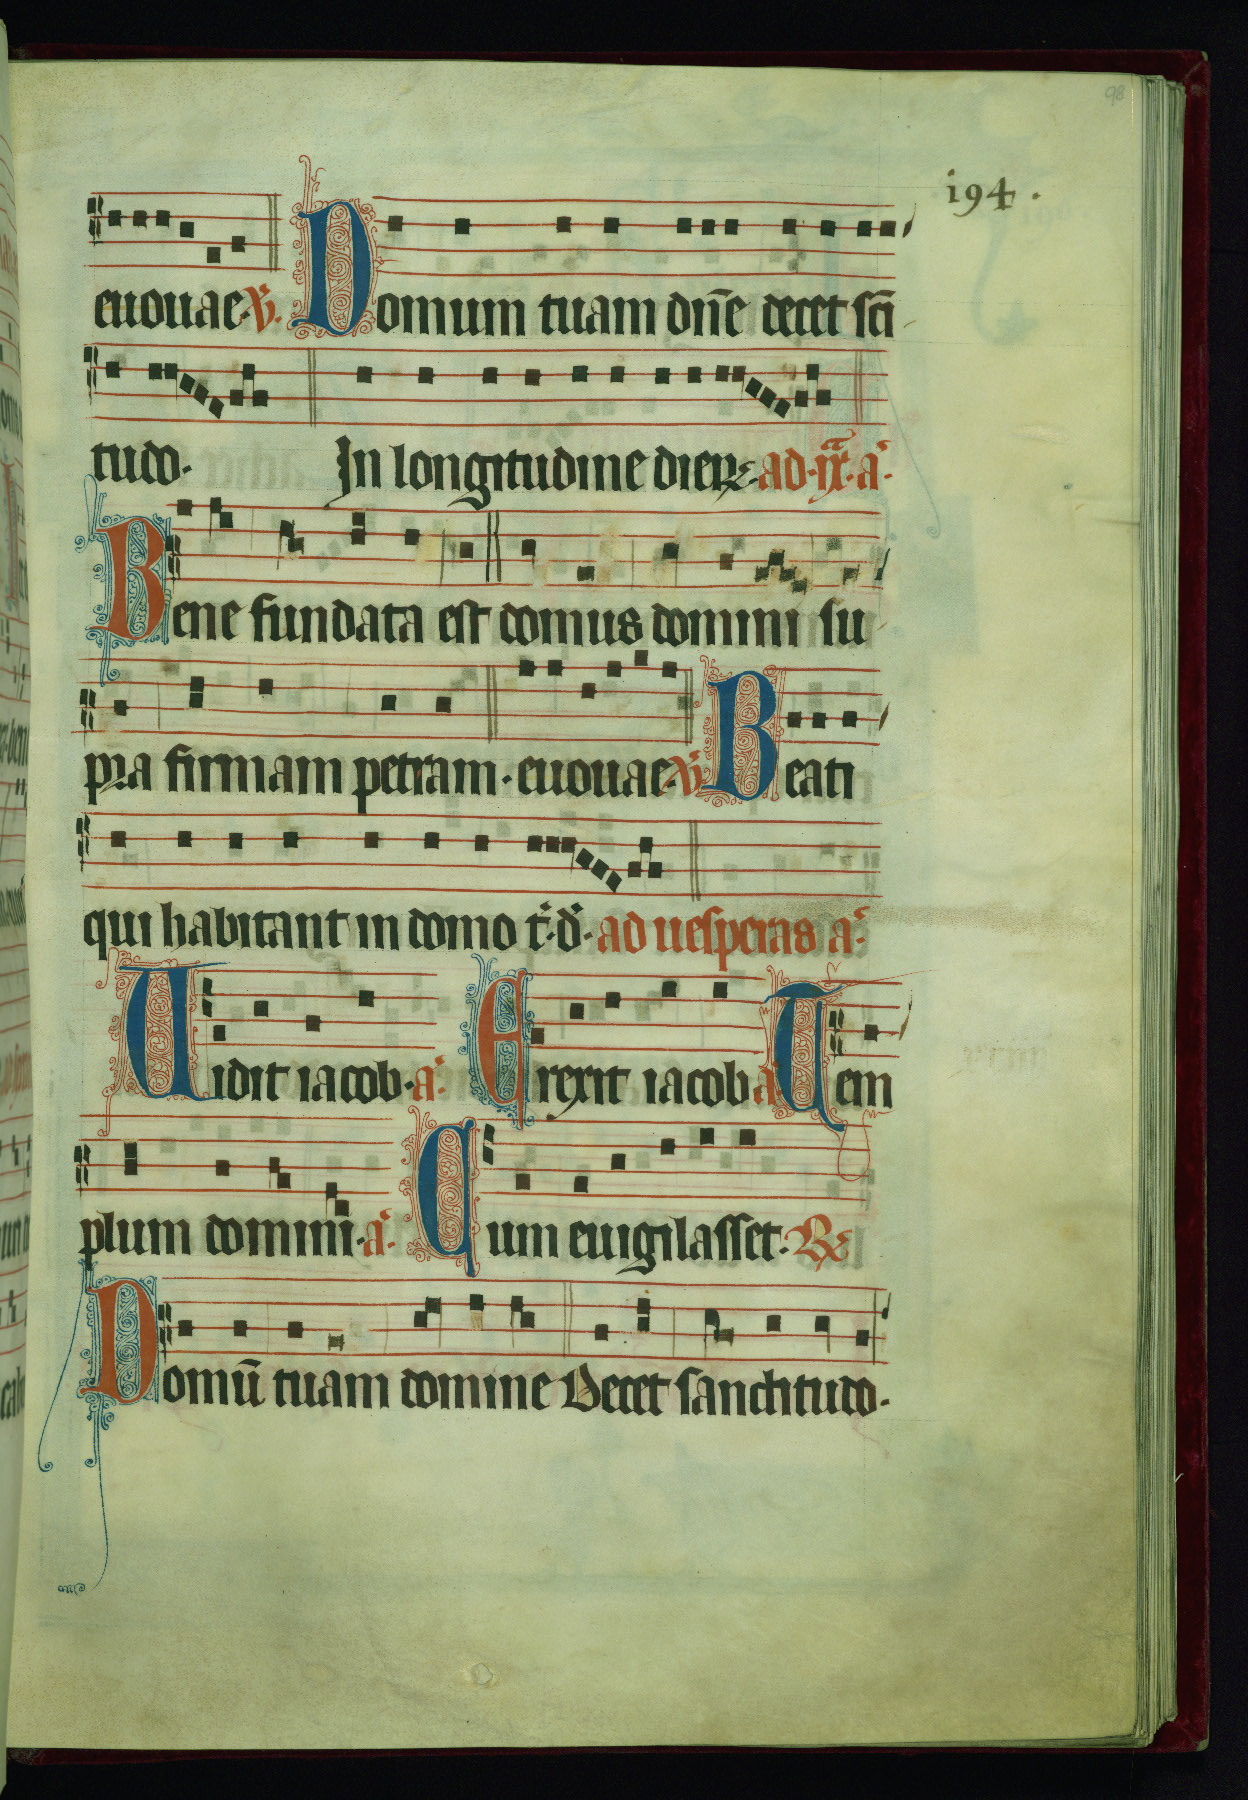 98
i94.
euouae. V. Domum tuam dñe decet sci
tudo. In longitudine dierꝝ. ad. ix. a.
Bene fundata est domus domini su
pra firmam petram. euouae. V. Beati
qui habitant in domo t. d. ad uesperas a.
Uidit iacob. a. Erexit iacob a Tem
plum domini. a. Cum euigilasset. R
Domū tuam domine Decet sanctitudo.